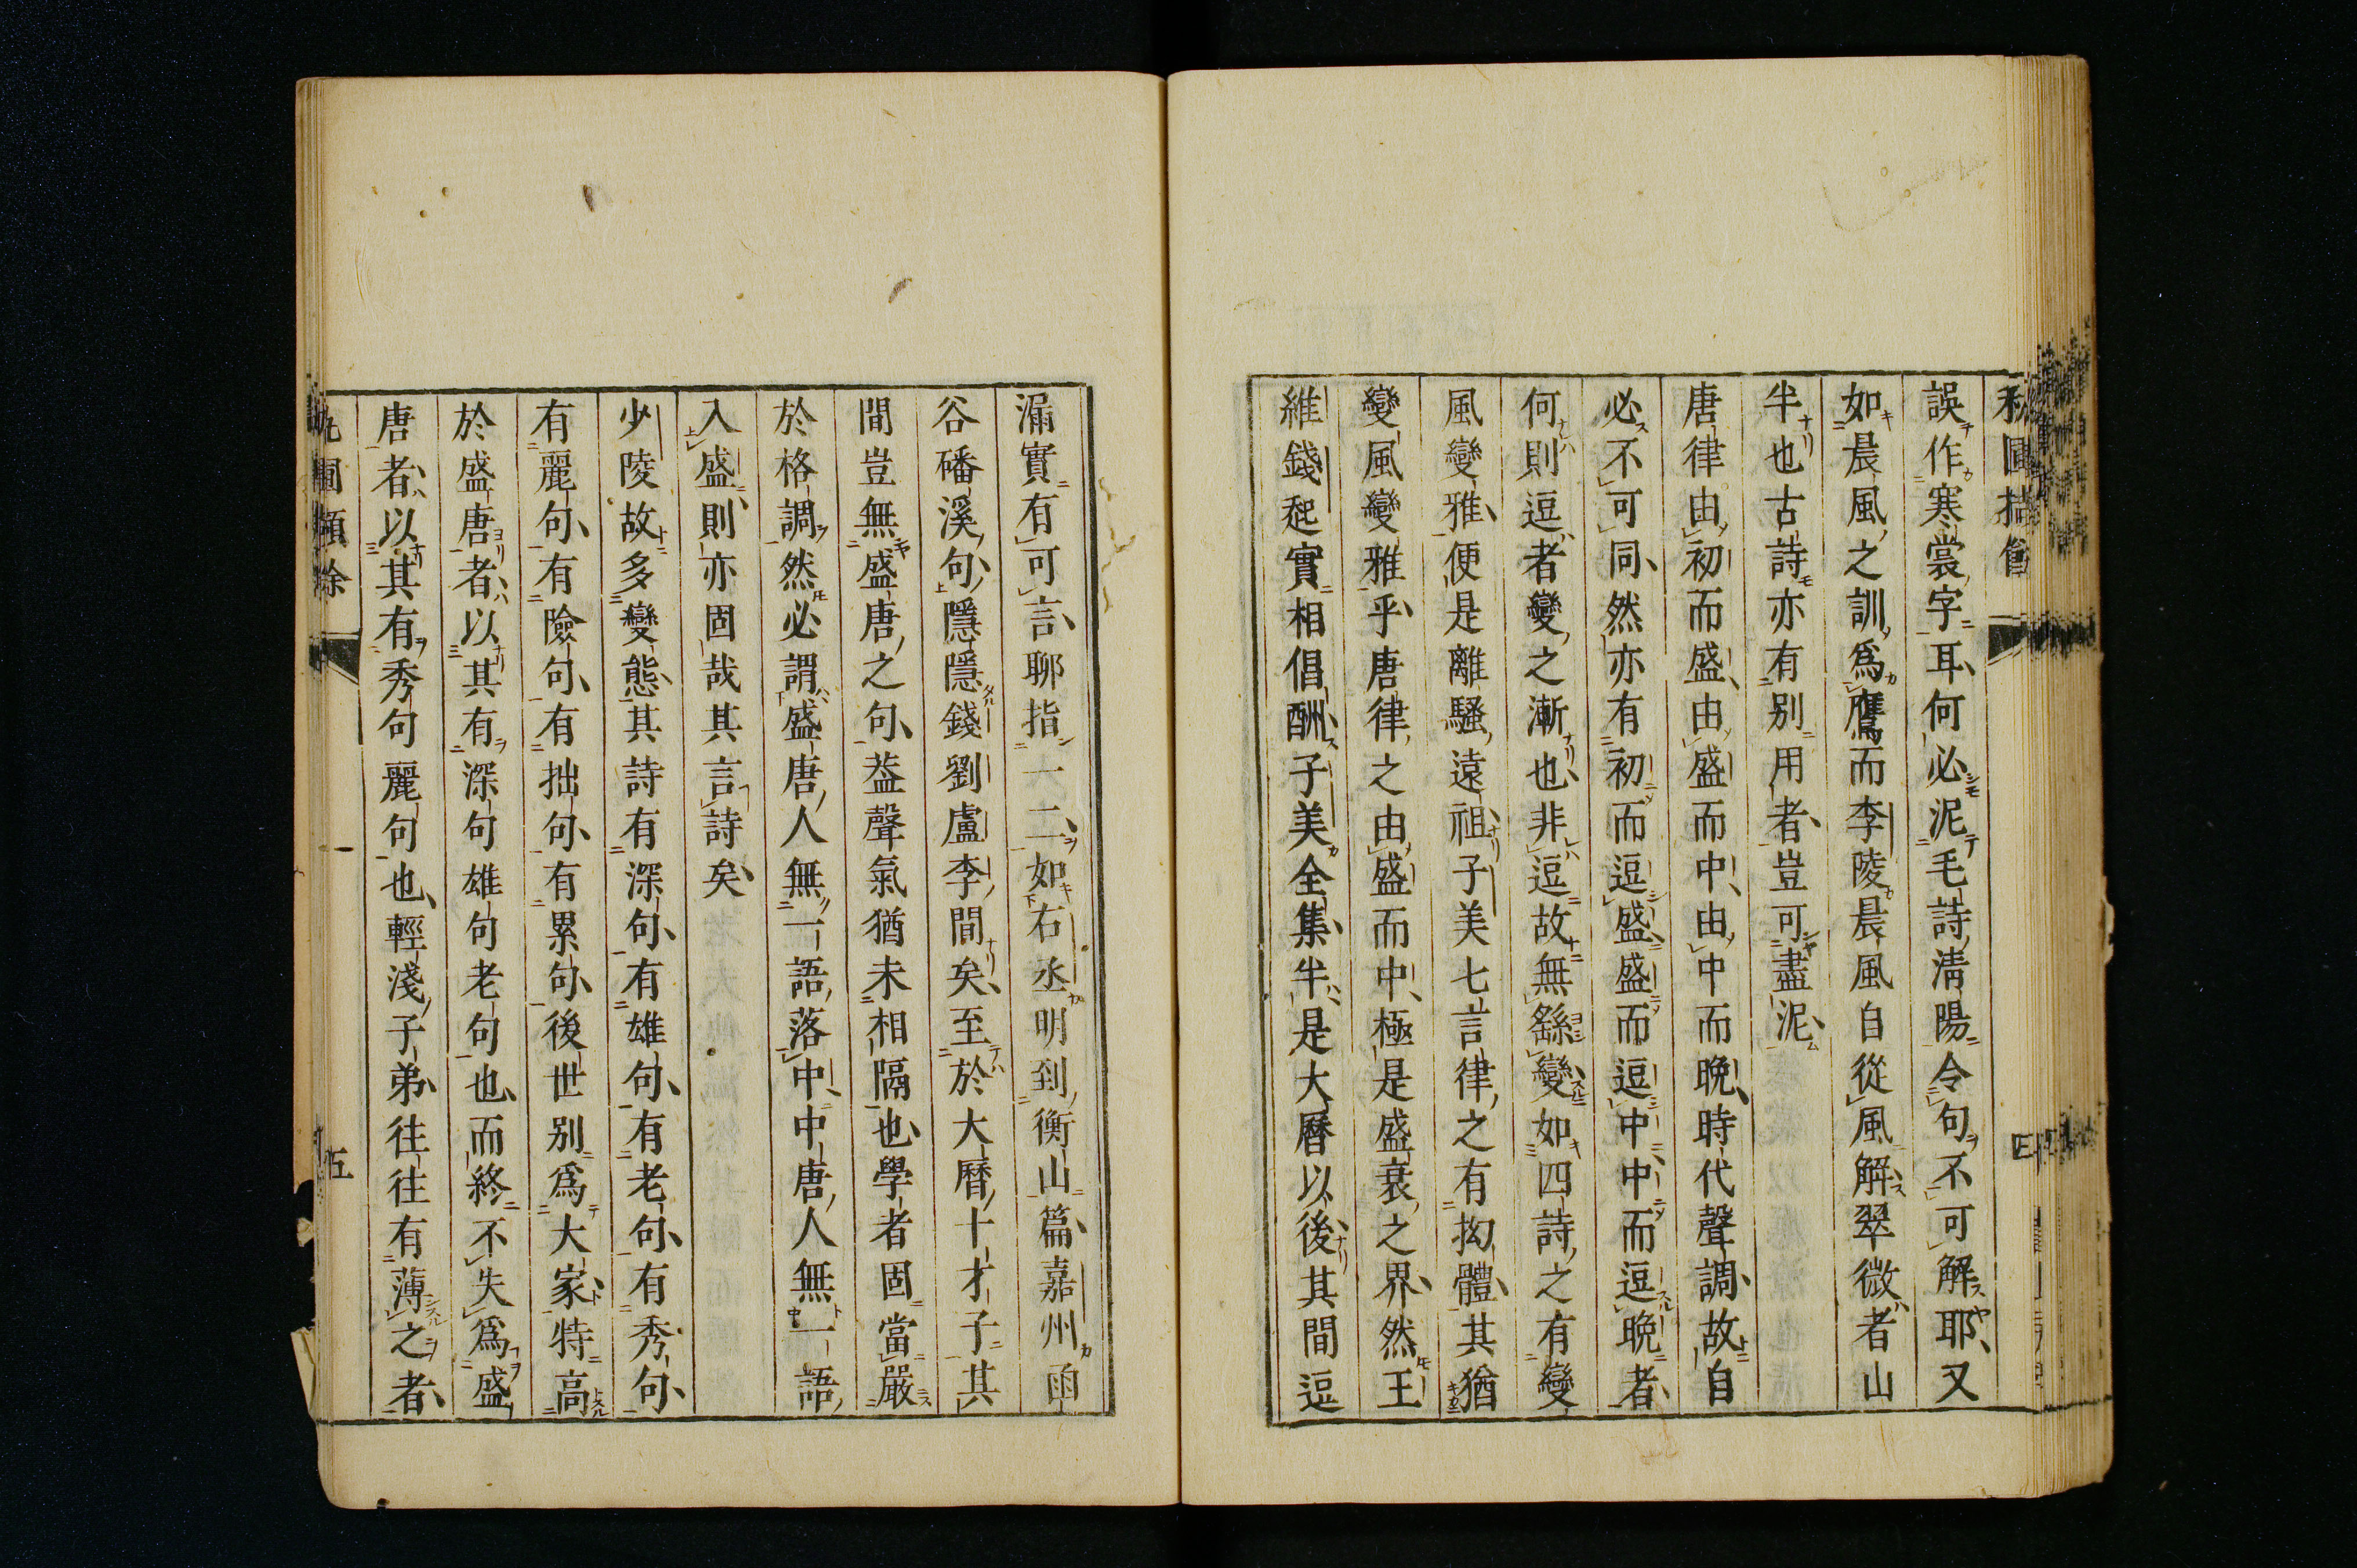 誤作寒裳字耳何必泥毛詩淸陽令句不可解耶又
如晨風之訓爲鷹而李陵晨風自從風解翠微者山
半也古詩亦有別用者豈可盡泥
唐律由初而盛由盛而中由中而晚時代聲調故自
必不可同然亦有初而逗盛盛而逗中中而逗晚者
何則逗者變之漸也非逗故無繇變如四詩之有變
風變雅便是離騷遠祖子美七言律之有拗體其猶
變風變雅乎唐律之由盛而中極是盛衰之界然王
維錢起實相倡酬子美全集半是大曆以後其間逗
漏實有可言聊指一二如右丞明到衡山篇嘉州函
谷磻溪句隱隱錢劉盧李間矣至於大曆十才子其
間豈無盛唐之句葢聲氣猶未相隔也學者固當嚴
於格調然必謂盛唐人無一語落中中唐人無一語
入盛則亦固哉其言詩矣
少陵故多變態其詩有深句有雄句有老句有秀句
有麗句有險句有拙句有累句後世別爲大家特高
於盛唐者以其有深句雄句老句也而終不失爲盛
唐者以其有秀句麗句也輕淺子弟往往有薄之者
五